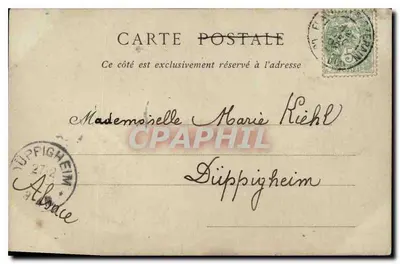 CARTE POSTALE
Ce côté est exclusivement réservé à l'adresse
Mademoiselle Marie Kiehl
CPAPHIL
Düppigheim
Alsace
DÜPPIGHEIM